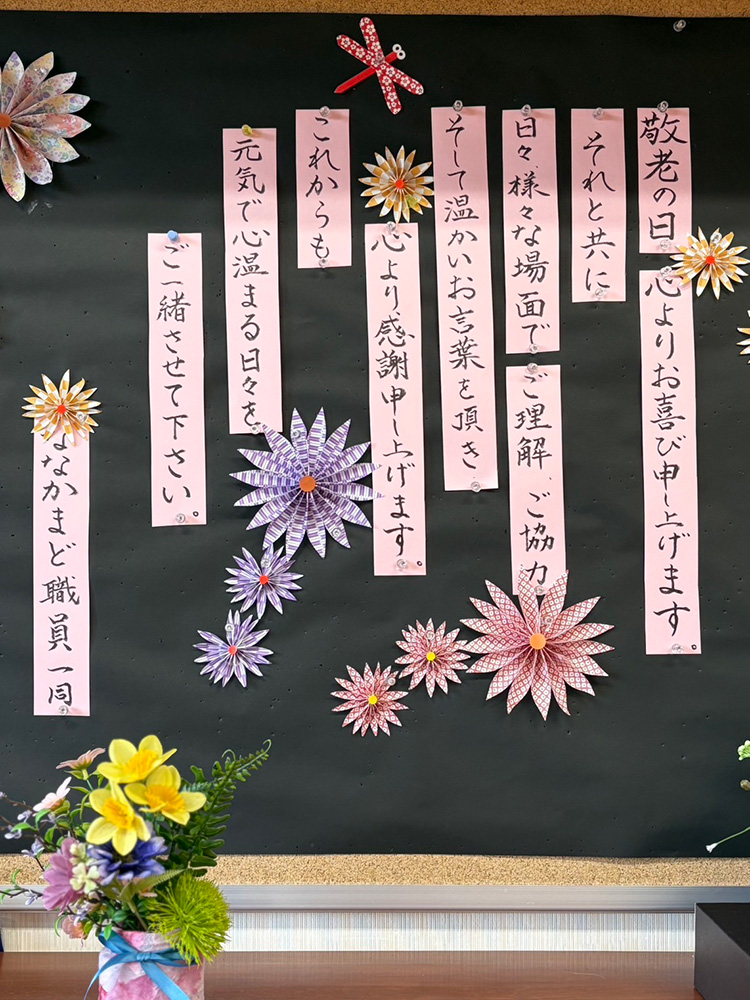 敬老の日
心よりお喜び申し上げます。
それと共に
日々、様々な場面で
ご理解、ご協力
そして温かいお言葉を頂き
心より感謝申し上げます。
これからも
元気で心温まる日々を
ご一緒させて下さい。
ななかまど職員一同